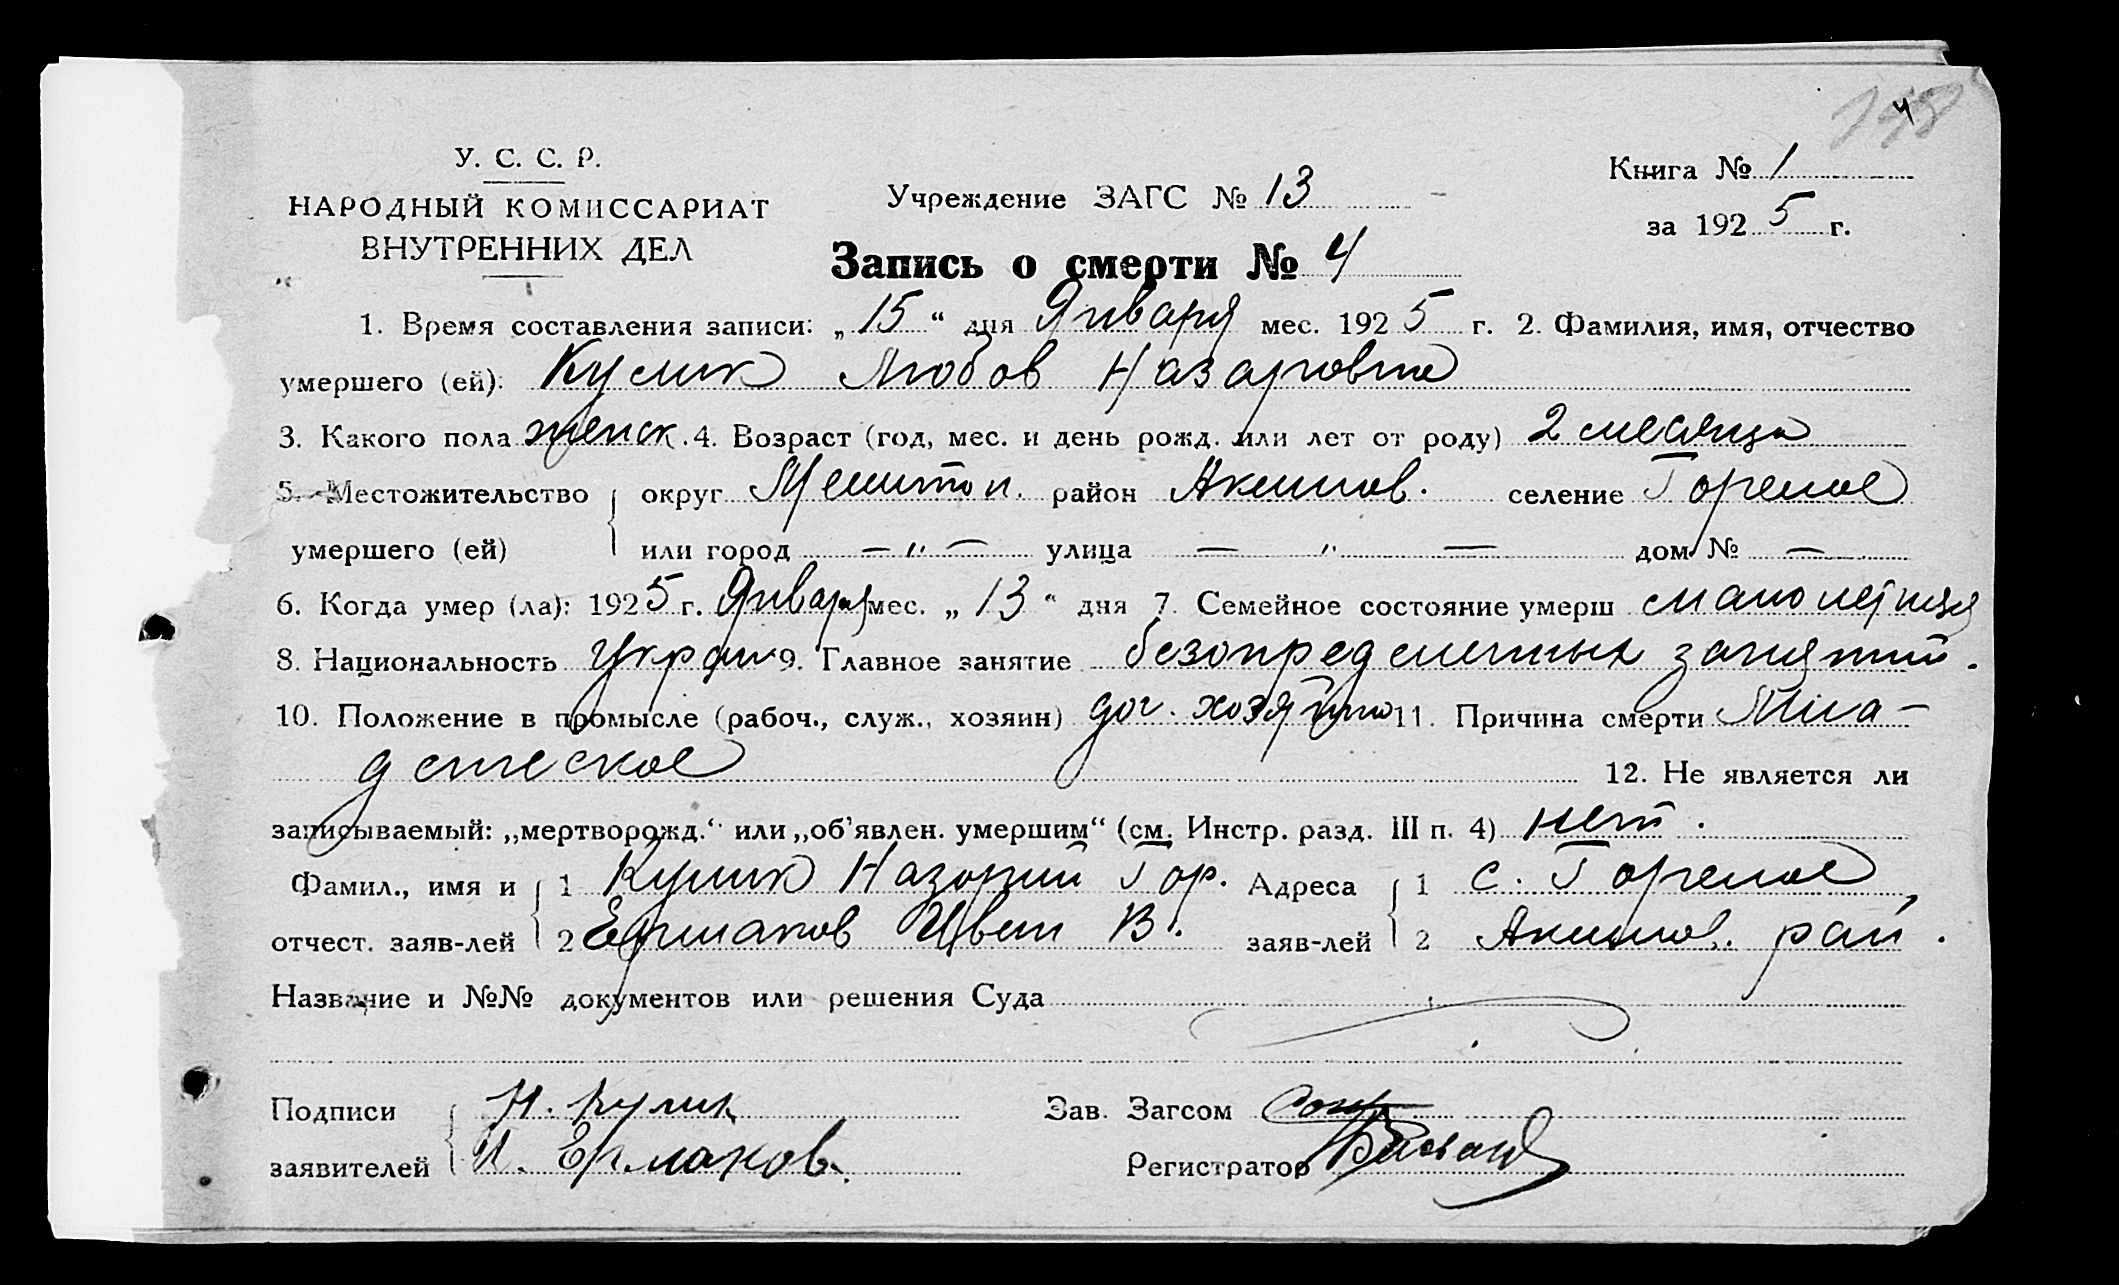 4
У. С. С. Р.
НАРОДНЫЙ КОМИССАРИАТ
ВНУТРЕННИХ ДЕЛ
Учреждение ЗАГС № 13
Книга № 1
за 1925 г.
Запись о смерти № 4
1. Время составления записи: „15“ дня Января мес. 1925 г. 2. Фамилия, имя, отчество
умершего (ей): Кулик Любов Назаровна
3. Какого пола женск. 4. Возраст (год, мес. и день рожд. или лет от роду) 2 месяца
5. Местожительство округ Мелитоп. район Акимов. селение Горелое
умершего (ей) или город — „ — улица — „ — дом № —
6. Когда умер (ла): 1925 г. Января мес. „13“ дня 7. Семейное состояние умерш малолетняя
8. Национальность Украин 9. Главное занятие безопределенных занятий.
10. Положение в промысле (рабоч., служ., хозяин) доч. хозяина 11. Причина смерти Мла-
денческое 12. Не является ли
записываемый: „мертворожд.“ или „об'явлен. умершим“ (см. Инстр. разд. III п. 4) нет.
Фамил., имя и 1 Кулик Назарий Гор. Адреса 1 с. Горелое,
отчест. заяв-лей 2 Ермаков В. заяв-лей 2 Акимов. рай.
Название и №№ документов или решения Суда
Подписи Н. Кулик Зав. Загсом
заявителей И. Ермаков. Регистратор